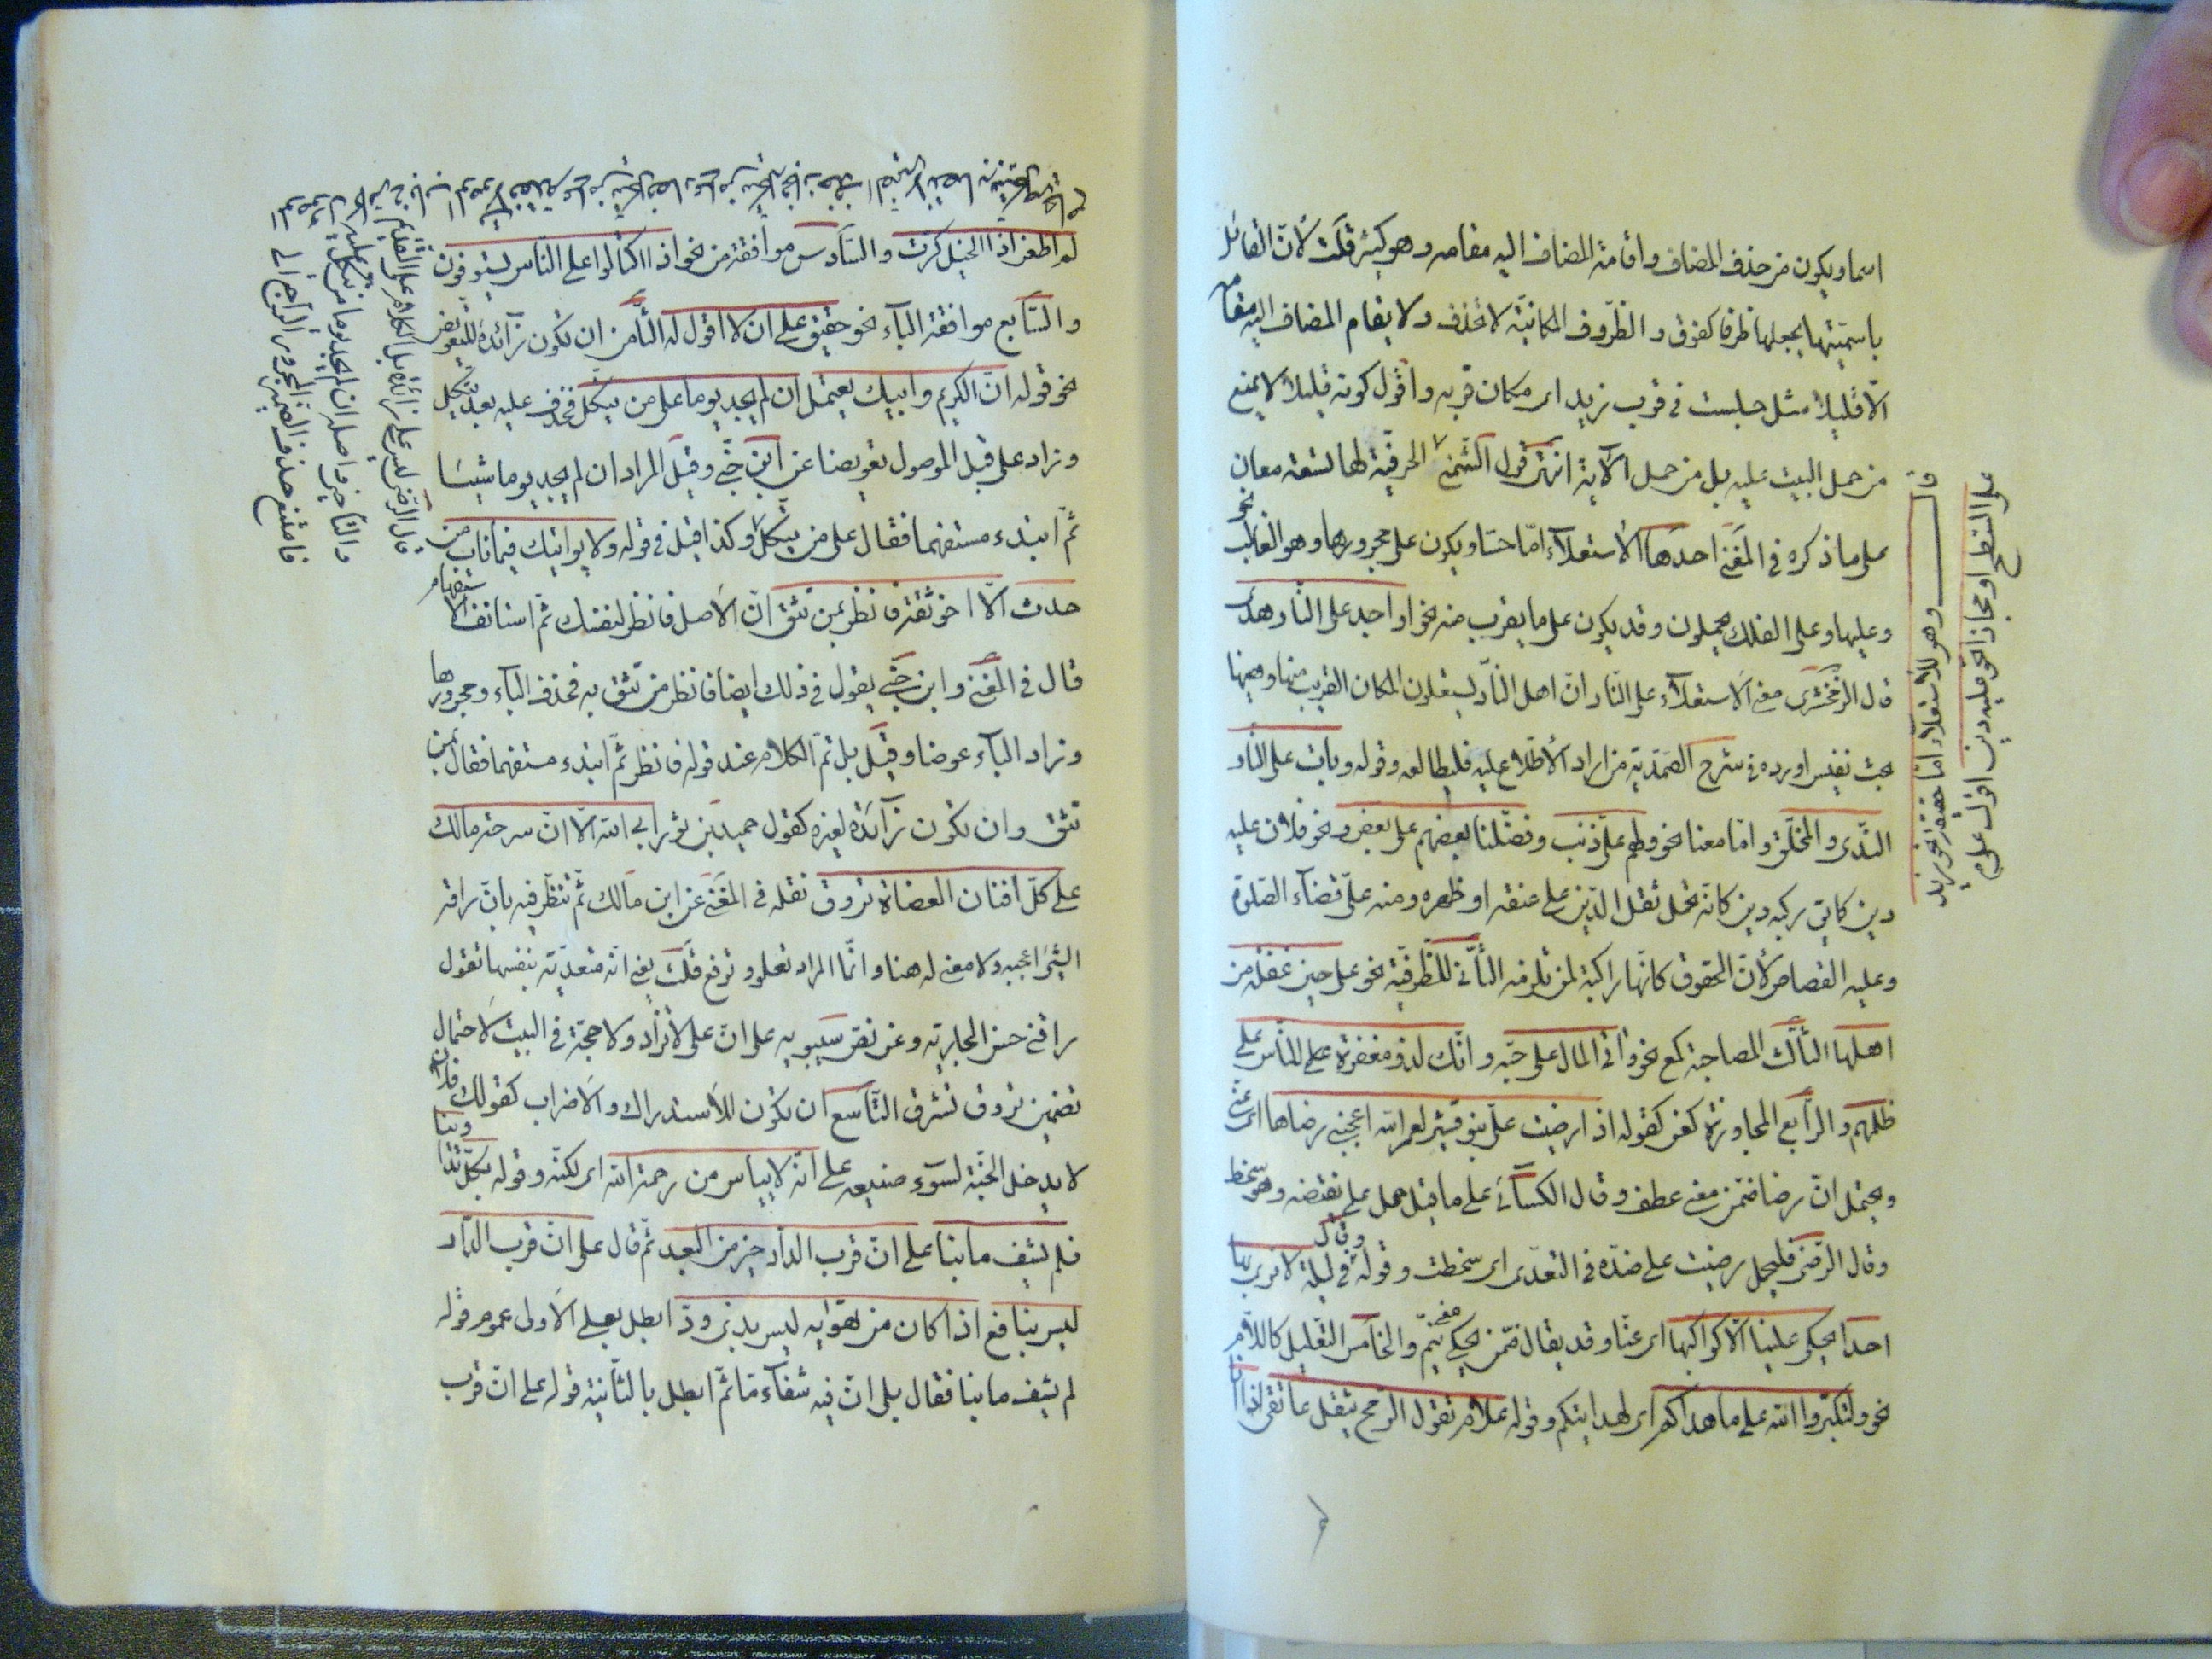 اسما ويكون من حذف المضاف واقامة المضاف اليه مقامه وهو كثير قلت لأنّ القائل
باسميّتها يجعلها ظرفا كفوق والظّروف المكانيّة لا تحذف ولا يقام المضاف اليه مقامه
الّا قليلا مثل جلست فى قرب زيد اى مكان قربه واقول كونه قليلا لا يمنع
من حمل البيت عليه بل من حمل الآية انتهى قول الشمنى الحرفيّة لها تسعة معان
على ما ذكره فى المغنى احدها الأستعلاء امّا حسّا ويكون على مجرورها وهو الغالب نحو
وعليها وعلى الفلك تحملون وقد يكون على ما يقرب منه نحو او اجد على النّار هدى
قال الزمخشرى معنى الاستعلاء على النّار انّ اهل النّار يستعلون المكان القريب منها وهيهنا
بحث نفيس اورده فى شرح الصمديّة من اراد الأطّلاع عليه فليطالعه وقوله وبات على النّار
النّدى والمحلّق وامّا معنا نحو ولهم علىّ ذنب وفضّلنا بعضهم على بعض ونحو فلان عليه
دين كانّ ركبه دين كانّه تحمل ثقل الدّين على عنقه او ظهره ومنه علىّ قضاء الصّلوة
وعليه القصاص لأنّ الحقوق كانّها راكبة لمن تلزمه الثّانى للظّرفيّة نحو على حين غفلة من
اهلها الثّالث المصاحبة كمع نحو واتى المال على حبّه وانّك لذو مغفرة على للنّاس على
ظلمهم والرّابع المجاوزة كعن كقوله اذا رضيت علىّ بنو قشير لعمر الله اعجبنى رضاها اى عنّى
ويحتمل انّ رضا ضمّن معنى عطف وقال الكسائى على ما قبل حمل على نقيضه وهو سخط
وقال الرّضى فليحمل رضيت على ضدّه فى التعدّى اى سخطت وقوله فى ليلة لا نرى بها
احدا يحكى علينا الّا كواكبها اى عنّا وقد يقال ضمّن يحكى معنى ينمّ والخامس التّعليل كاللّام
نحو ولتكبّروا الله على ما هداكم اى لهدايتكم وقوله علام تقول الرّمح يثقل عاتقى اذا انا
قال وهو للأستعلاء امّا حقيقة نحو زيد
على السّطح او مجازا نحو عليه دين
لم اطعن اذا الخيل كرّت والسّادس موافقة من نحو اذا اكتالوا على النّاس يستوفون
والسّابع موافقة الباء نحو حقيق على ان لا اقول له الثّامن ان تكون زائدة للتّعويض
نحو قوله انّ الكريم وابيك يعتمل ان لم يجد يوما على من يتّكل فحذف عليه بعد يتّكل
وزاد على قبل الموصول تعويضا عن ابن جنّى وقيل المراد ان لم يجد يوما شيئا
ثمّ ابتدء مستفهما فقال على من يتّكل وكذا قيل فى قوله ولا يواتيك فيما ناب من
حدث الّا اخو ثقة فانظر بمن تثق انّ الاصل فانظر لنفسك ثمّ استانف الأستفهام
قال فى المغنى وابن جنّى يقول فى ذلك ايضا فانظر من تثق به فحذف الباء ومجرورها
وزاد الباء عوضا وقيل بل تمّ الكلام عند قوله فانظر ثمّ ابتدء مستفهما فقال بمن
تثق وان تكون زائدة لغيره كقول حميد بن ثور ابى الله الّا انّ سرحة مالك
على كلّ افنان العضاة تروق نقله فى المغنى عن ابن مالك ثمّ تنظّر فيه بانّ راقه
الشّئ اعجبه ولا معنى له هنا وانّما المراد تعلو وترفع قلت يعنى انّه متعدّية بنفسها تقول
راقنى حسن الجارية وعن نصّ سيبويه على انّ على لا تزاد ولا حجّة فى البيت لاحتمال
تضمين تروق تشرق التّاسع ان تكون للأستدراك والاضراب كقولك فلان
لا يدخل الجنّة لسوء صنيعه على انّه لا ييأس من رحمة الله اى لكنّه وقوله بكلّ تداوينا
فلم يشف ما بنا على انّ قرب الدّار خير من البعد ثمّ قال على انّ قرب الدّار
ليس بنافع اذا كان من تهواه ليس بذى ودّ ابطل بعلى الاولى عموم قوله
لم يشف ما بنا فقال بلى انّ فيه شفاء ما ثمّ ابطل بالثّانية قوله على انّ قرب